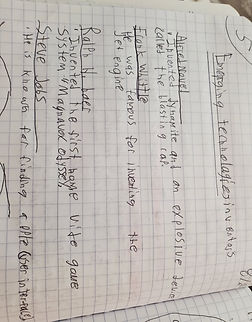 5
Emerging technologies inventors
Alfred Nobel
• Invented dynamite and an explosive device
called the blasting cap.
Frank Whittle
He was famous for inventing the
Jet engine
Ralph H. Baer
• Invented the first home vide game
System, Magnavox odyssey
Steve Jobs
• He is known for finding apple (User interfaces)